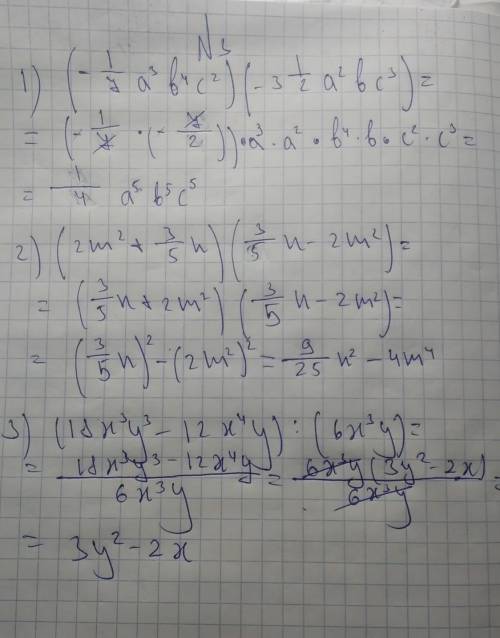 N3
1) (-1/7 a³ b⁴ c²)(-3 1/2 a² b c³) =
= (-1/7 · (-7/2)) · a³ · a² · b⁴ · b · c² · c³ =
= 1/4 a⁵ b⁵ c⁵
2) (2m² + 3/5 n)(3/5 n - 2m²) =
= (3/5 n + 2m²)(3/5 n - 2m²) =
= (3/5 n)² - (2m²)² = 9/25 n² - 4m⁴
3) (18x³y³ - 12x⁴y) : (6x³y) =
= (18x³y³ - 12x⁴y)/(6x³y) = 6x³y(3y² - 2x)/(6x³y) =
= 3y² - 2x